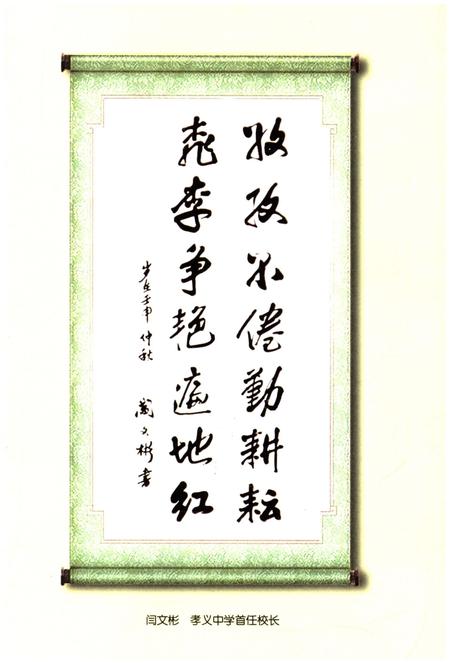 孜孜不倦勤耕耘
桃李争艳遍地红
岁在壬申仲秋
阎文彬书
闫文彬 孝义中学首任校长